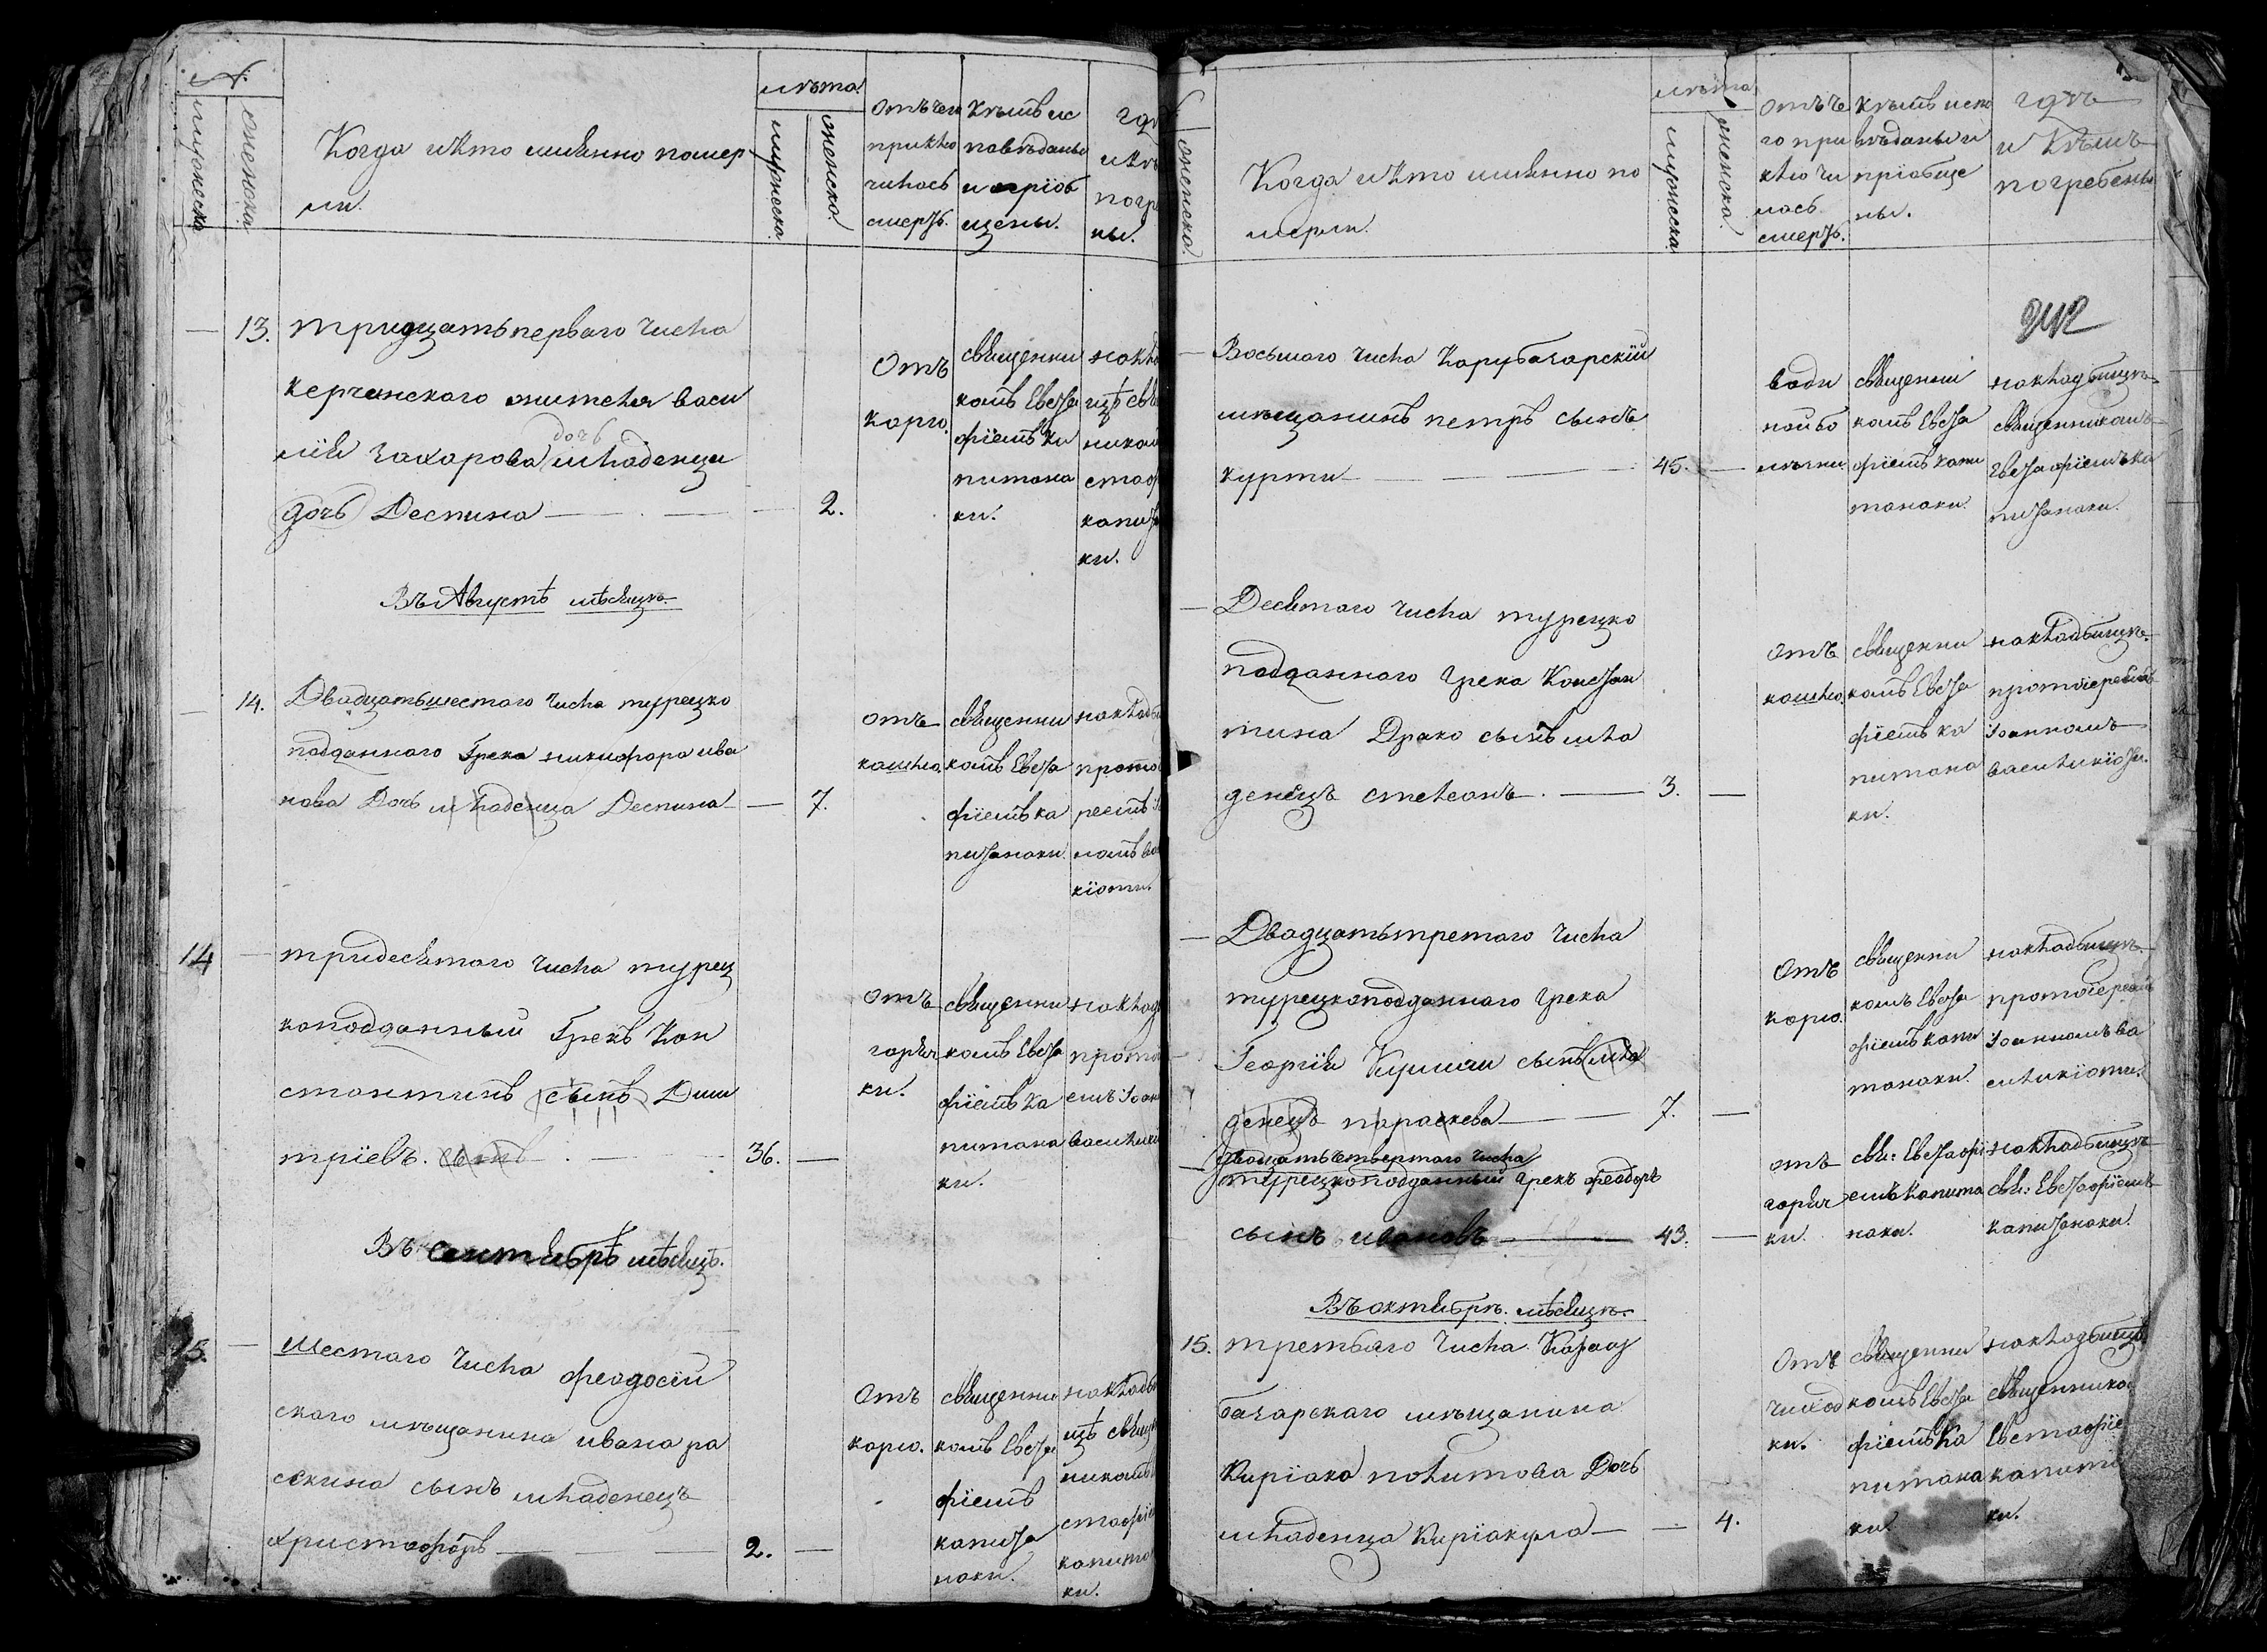 №
мужеска
женска
Когда и кто именно помер
ли.
лѣта
мужеска
женска
отъ чего
приклю
чилась
смерть.
Кѣмъ ис
повѣданы
и пріоб
щены.
гдѣ
и кѣ
погре
ны.
13. тридцать перваго числа
керчинского жителя васи
лія захарова дочь младенца
дочь Деспина 2.
Отъ
корю.
священни
комъ Евста
фіемъ ка
питана
ки.
на кла
цѣ свя
никомъ
стаф
капита
ки.
Въ Августѣ мѣсяцѣ
14. Двадцать шестаго числа турецко
подданного Грека никифора ива
нова Дочь младенца Деспина 7.
отъ
кашлю.
священни
комъ Евста
фіемъ ка
питанаки.
на кладби
прото
реемъ
номъ ва
кіоти.
14 тридесятаго числа турец
коподданный Грекъ Кон
стантинъ сынъ Дими
тріевъ. сынъ 36.
отъ
горяч
ки.
священни
комъ Евста
фіемъ ка
питана
ки.
на клад
прото
емъ Іоан
василики
Въ сентябрѣ мѣсяцѣ.
15. Шестаго числа феодосій
скаго мѣщанина ивана ра
скина сынъ младенецъ
христофоръ 2.
отъ
корю.
священни
комъ Евста
фіемъ
капита
наки.
на кладби
цѣ священ
никомъ
стафіе
капита
ки.
женска
Когда и кто именно по
мерли.
лѣта
мужеска
женска
отъ че
го при
клю чи
лась
смерть.
кѣмъ испо
вѣданы и
пріобще
ны.
гдѣ
и кѣмъ
погребены
242
Восьмаго числа Карубазарскій
мѣщанинъ петръ сынъ
курти 45.
води
ной бо
лѣзни
священни
комъ Евста
фіемъ капи
танаки.
на кладбищѣ
священникомъ
Евстафіемъ ка
питанаки.
Десятаго числа турецко
подданного Грека Констан
тина Драко сынъ мла
денецъ стелеанъ. 3.
отъ
кашлю.
священни
комъ Евста
фіемъ ка
питана
ки.
на кладбищѣ
протоіереемъ
Іоанномъ
василикіоти.
Двадцать третаго числа
турецкоподданного Грека
Георгія Кумиси сынъ мла
денецъ параскева 7.
Отъ
корю.
священни
комъ Евста
фіемъ капи
танаки.
на кладбищѣ
протоіереемъ
Іоанномъ ва
силикіоти.
двадцать четвертаго числа
турецкоподданный Грекъ феодоръ
сынъ ивановъ 43.
отъ
горяч
ки.
свя: Евстафі
емъ капита
наки.
на кладбищѣ
свя: Евстафіемъ
капитанаки.
Въ октябрѣ мѣсяцѣ.
15. третьаго числа Карасу
базарскаго мѣщанина
Киріака политова Дочь
младенца Киріакула 4.
Отъ
чиход
ки.
священни
комъ Евста
фіемъ ка
питана
ки.
на кладбищѣ
священнико
Евстафіе
капита
ки.